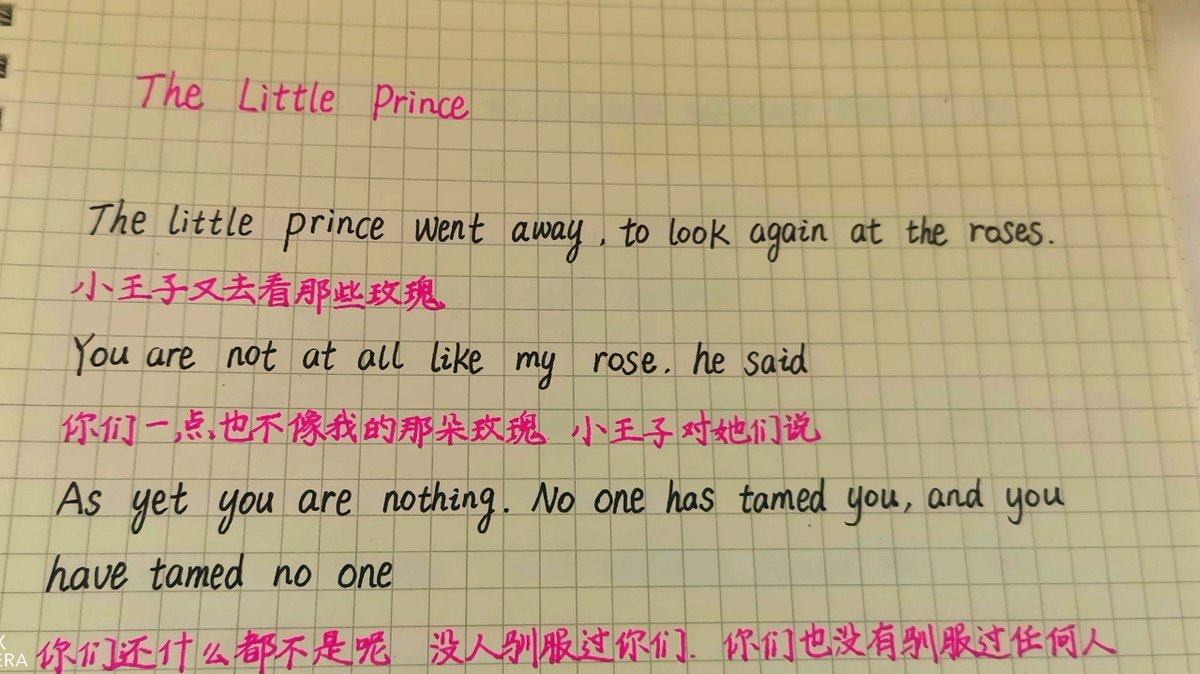 The Little Prince
The little prince went away, to look again at the roses.
小王子又去看那些玫瑰
You are not at all like my rose. he said
你们一点也不像我的那朵玫瑰 小王子对她们说
As yet you are nothing. No one has tamed you, and you
have tamed no one
你们还什么都不是呢 没人驯服过你们. 你们也没有驯服过任何人